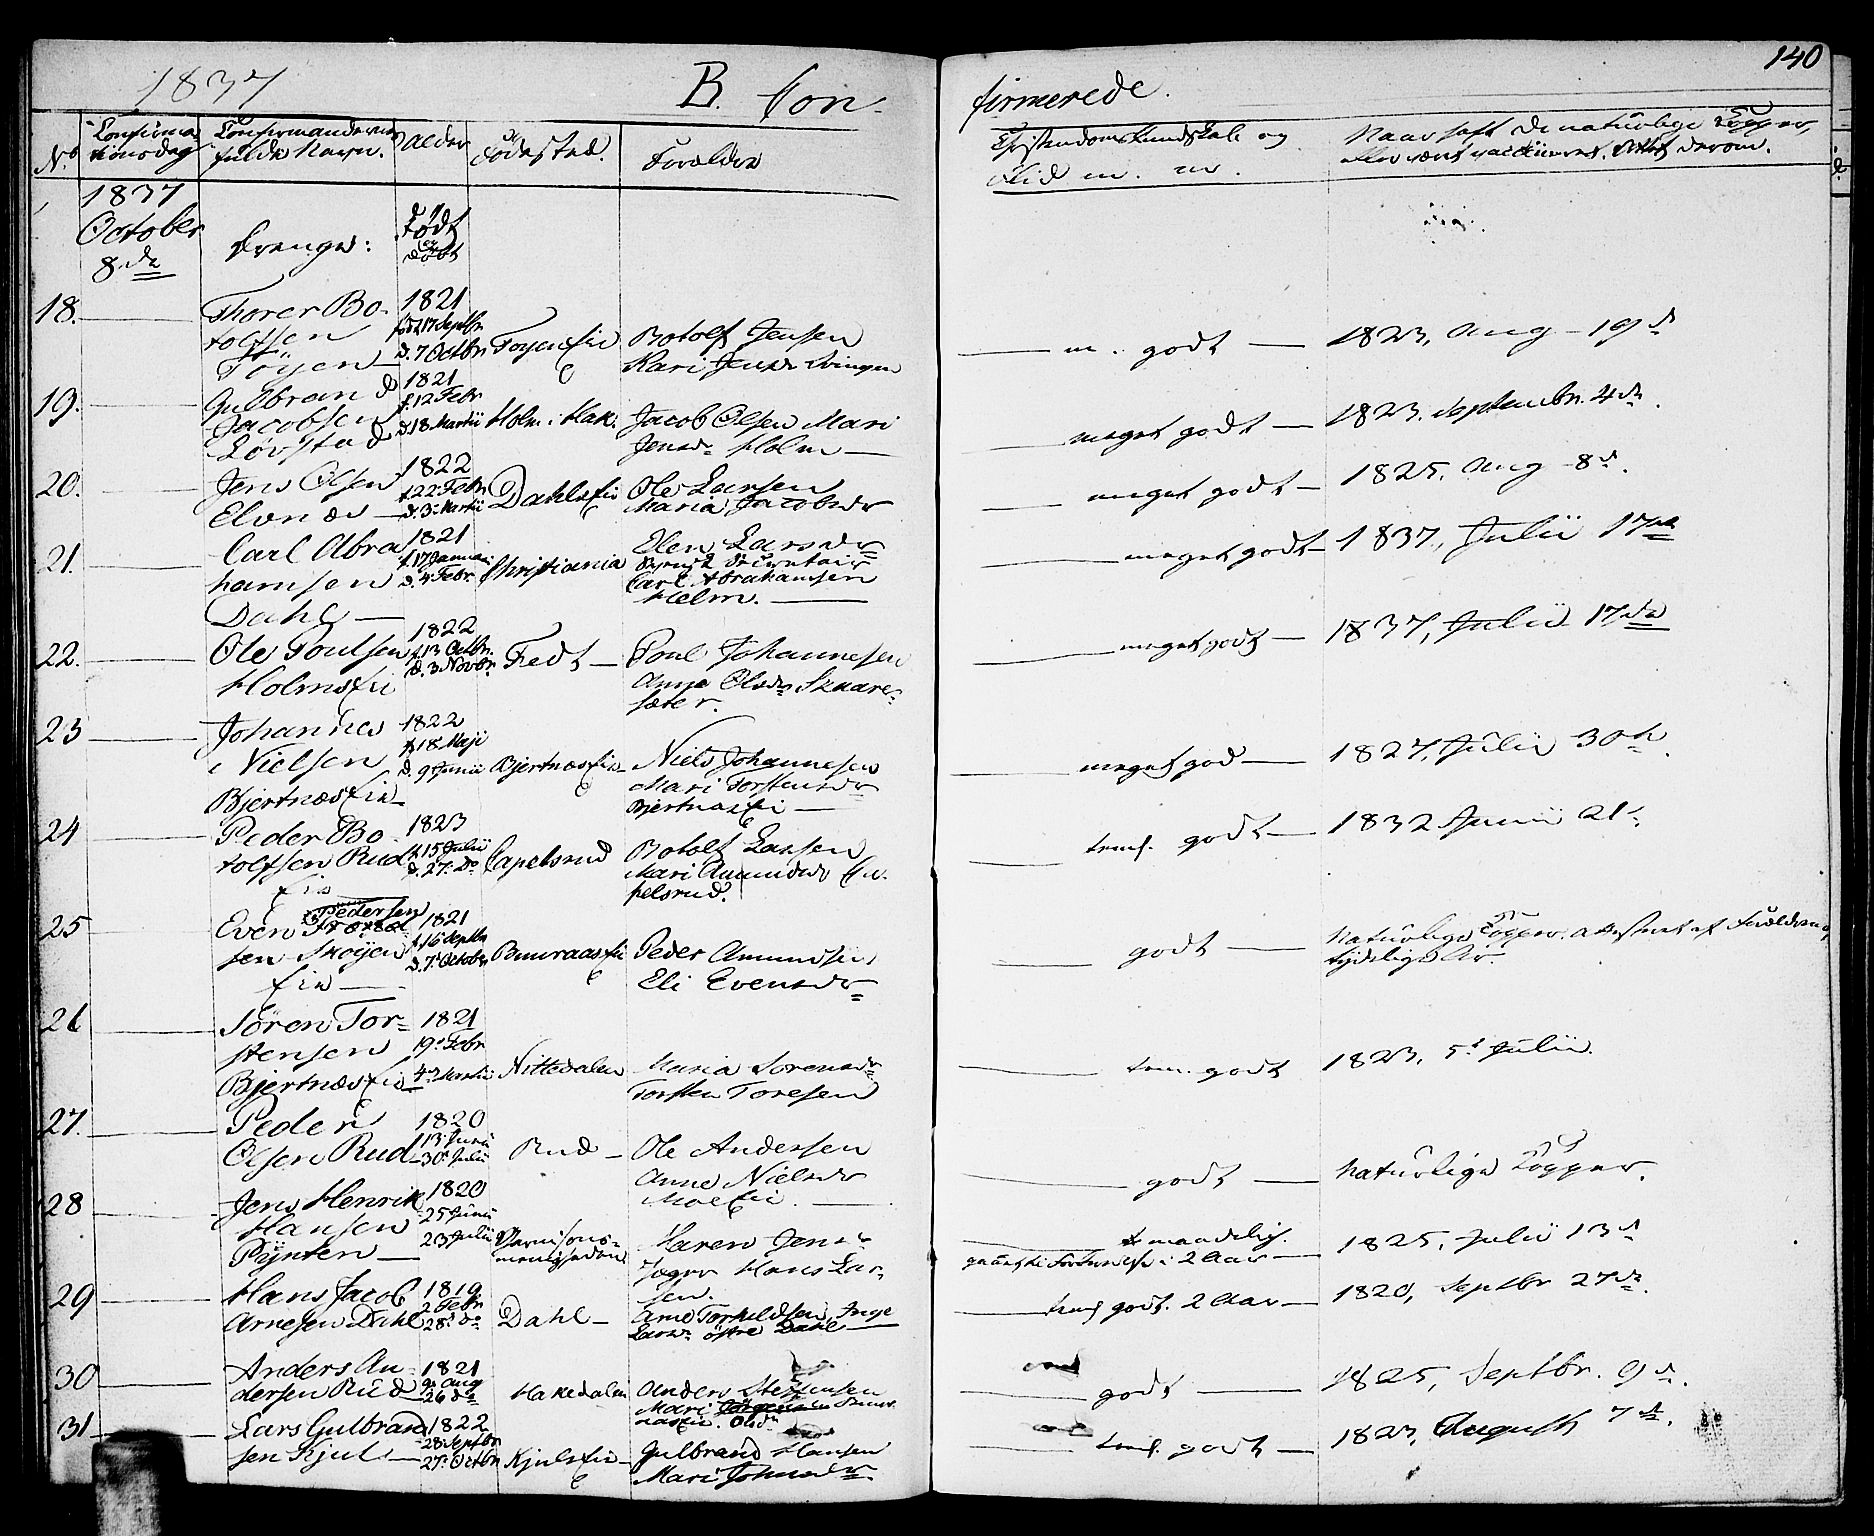 140
1837 B. Con- firmerede.
No Confirma tionsdag Confirmandernes fulde Navn. Alder Födested. Forældre Christendoms Kundskab og Flid m. m. Naar haft de naturlige Kopper, eller været vaccineret. Attest derom.
1837
October
8de
Drenge:
Födt
og
döbt
18. Thorer Bo-
tolfsen
Töyen
1821
født 17 Septbr
d. 7 Octbr
Töyenseie
Botolf Jensen
Kari Jensdr Svingen
m. godt 1823, Aug 19d
19. Gulbrand
Jacobsen
Lövstad
1821
f. 12 Febr
d. 18 Martii
Holm i Hak.
Jacob Olsen Mari
Jensdr Holm
meget godt 1823. September 4de.
20. Jens Olsen
Elvnæs
1822
f. 22 Febr
d. 3 Martii
Dahlseie
Ole Larsen
Maria Jacobsdr
meget godt 1825. Aug 8d.
21. Carl Abra
hamsen
Dahl
1821
f. 17 Januari
d. 4 Febr.
Christiania
Elen Larsdr
Carl Abrahamsen
Holm.
meget godt 1837, Julii 17de
22. Ole Poulsen
Holmseie
1822
f. 13 Octbr.
d. 3 Novbr.
Tedt
Poul Johannesen
Anne Olsdr Skare-
sæter.
meget godt 1837, Julii 17de
23 Johannes
Nielsen
Bjertnæseie
1822
f. 18 Maji
d. 9 Junii
Bjertnæseie
Niels Johannesen
Mari Torstensdr
Bjertnæseie
meget god 1827, Julii 30te
24 Peder Bo-
tolfsen Rud
eie
1823
f. 15 Julii
d. 27. do
Capelsrud
Botolf Larsen
Mari Amundsdr Ca-
pelsrud.
temf. godt 1832 Junii 21d.
25 Even Pedersen
sen Sköyen
eie
1821
f. 16 Septbr
d. 7 Octobr
Buuraaseie
Peder Amundsen
Eli Evensdr
godt Naturlige Kopper. attesteret af Forældrene,
tydelige Ar.
26 Sören Tor-
stensen
Bjertnæseie
1821
19. Febr
4de Martii
Nittedalen
Maria Sorensdr
Torsten Toresen
tem. godt 1823, 5t Julii.
27. Peder
Olsen Rud
1820
13 Junii
30. Julii
Rud
Ole Andersen
Anne Nielsdr
Moeeie.
godt Naturlige Kopper.
28 Jens Henrik
Hansen
Pynten
1820
25 Junii
23 Julii
Garnisons-
menigheden
Maren Jens-
Jæger Hans Lar-
sen.
maadelig.
i 2 Aar 1825, Julii 13d
29 Hans Jacob
Arnesen Dahl
1819.
2 Febr
28. do
Dahl
Arne Torkildsen, Inge
Larsdr östre Dahl
temf godt. 2 Aar 1820, Septbr 27de.
30 Anders An-
dersen Rud
1821
9 Aug
26 do
Hakedalen
Anders Steffensen
Mari Olsdr
godt 1825, Septbr. 9d.
31 Lars Gulbrand
sen Kjul
1822
28 Septbr
27. Octbr
Kjulseie
Gulbrand Hansen
Mari Johnsdr
temf. godt 1823, August 7de.